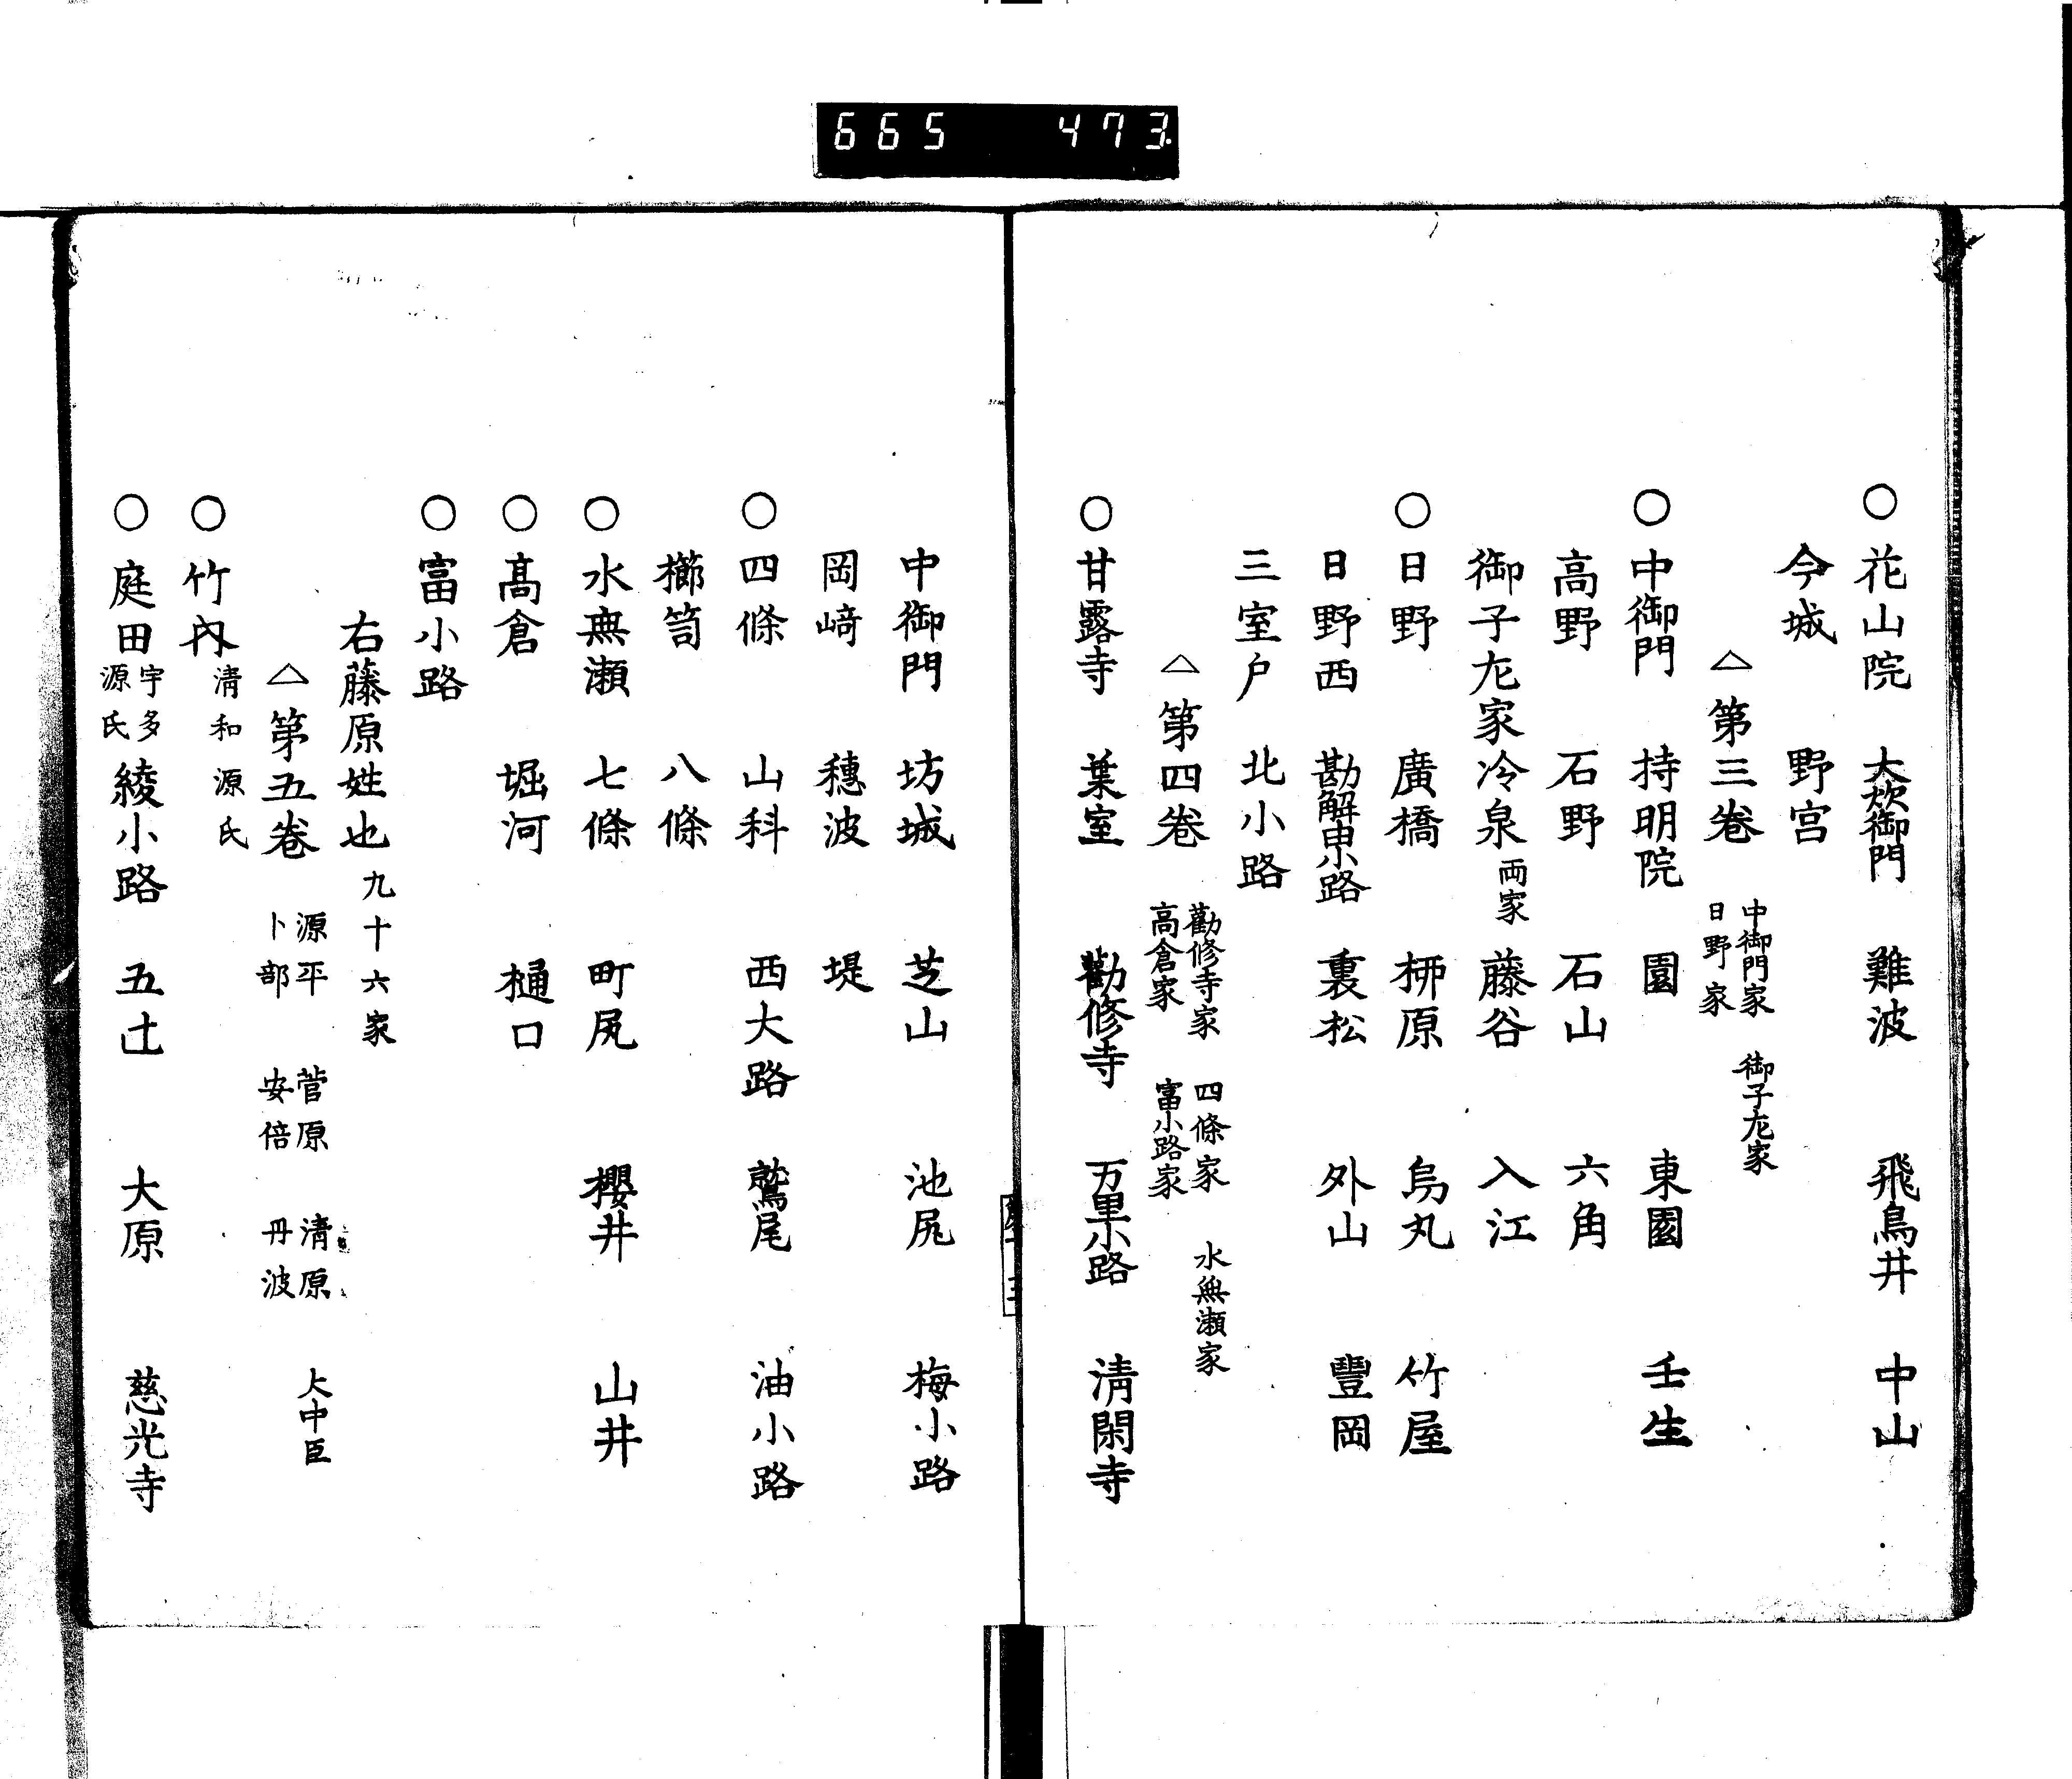 665 473
○花山院 大炊御門 難波 飛鳥井 中山
今城 野宮
△第三巻 中御門家 御子左家 日野家
○中御門 持明院 園 東園 壬生
高野 石野 石山 六角
御子左家冷泉両家 藤谷 入江
○日野 廣橋 栁原 烏丸 竹屋
日野西 勘解由小路 裏松 外山 豐岡
三室户 北小路
△第四巻 勸修寺家 四條家 水無瀬家 高倉家 富小路家
○甘露寺 葉室 勸修寺 万里小路 清閑寺
中御門 坊城 芝山 池尻 梅小路
岡﨑 穗波 堤
○四條 山科 西大路 鷲尾 油小路
櫛笥 八條
○水無瀬 七條 町尻 櫻井 山井
○髙倉 堀河 樋口
○富小路
右藤原姓也 九十六家
△第五巻 源平 菅原 清原 大中臣 卜部 安倍 丹波
○竹内 清和源氏
○庭田 宇多源氏 綾小路 五辻 大原 慈光寺